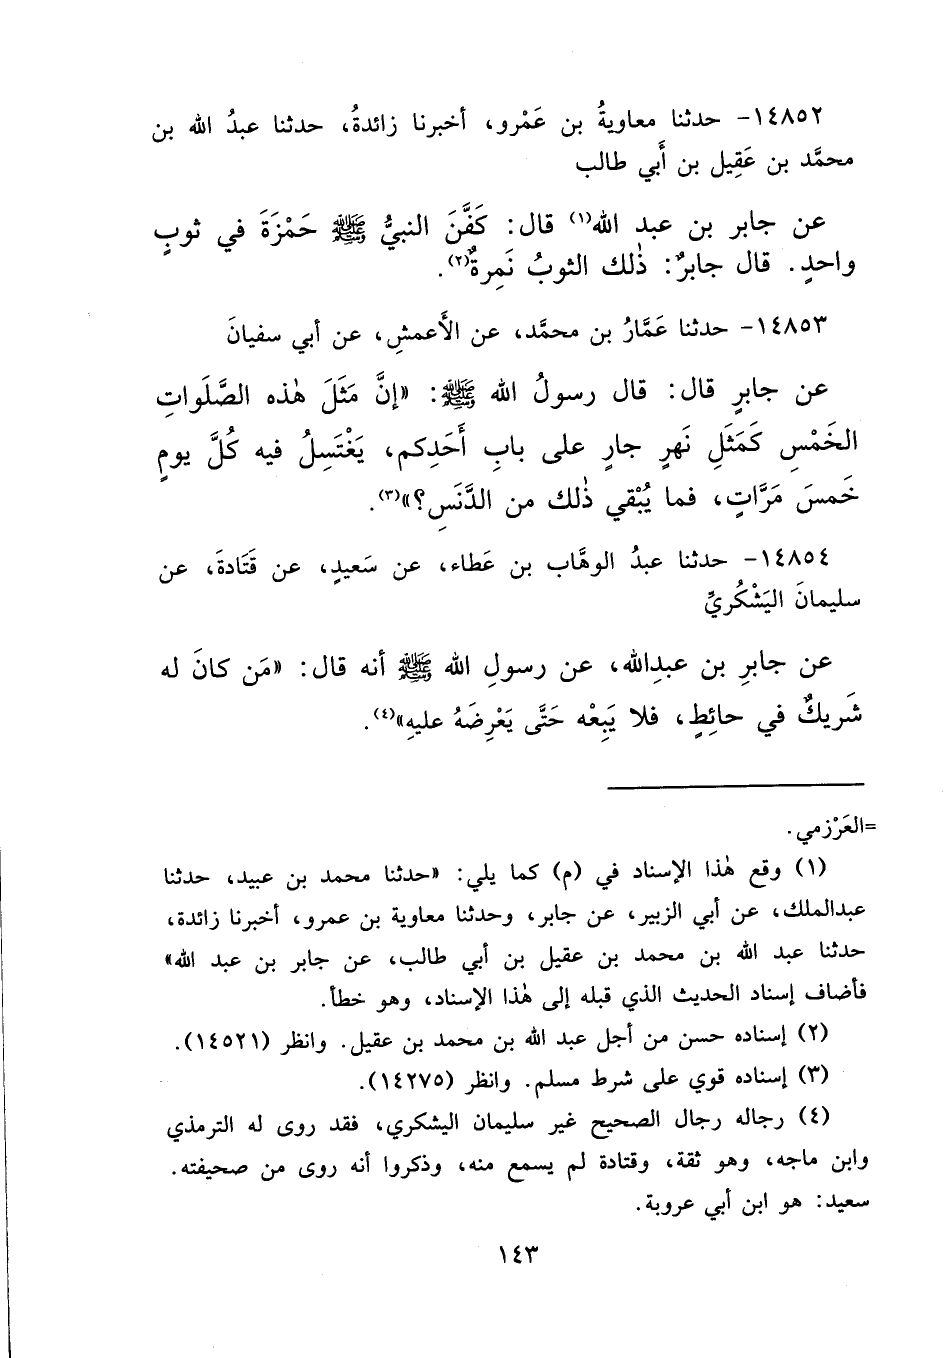 ١٤٨٥٢- حدثنا معاويةُ بن عَمْرو، أخبرنا زائدةُ، حدثنا عبدُ الله بن
محمَّد بن عَقِيل بن أَبي طالب
عن جابر بن عبد الله(١) قال: كَفَّنَ النبيُّ ﷺ حَمْزَةَ في ثوبٍ
واحدٍ. قال جابرٌ: ذٰلك الثوبُ نَمِرةٌ(٢).
١٤٨٥٣- حدثنا عَمَّارُ بن محمَّد، عن الأَعمشِ، عن أبي سفيانَ
عن جابرٍ قال: قال رسولُ الله ﷺ: «إنَّ مَثَلَ هٰذه الصَّلَواتِ
الخَمْسِ كَمَثَلِ نَهرٍ جارٍ على بابِ أَحَدِكم، يَغْتَسِلُ فيه كُلَّ يومٍ
خَمسَ مَرَّاتٍ، فما يُبْقي ذٰلك من الدَّنَسِ؟»(٣).
١٤٨٥٤- حدثنا عبدُ الوهَّاب بن عَطاء، عن سَعيدٍ، عن قَتَادةَ، عن
سليمانَ اليَشْكُريِّ
عن جابرِ بن عبدِالله، عن رسولِ الله ﷺ أنه قال: «مَن كانَ له
شَريكٌ في حائِطٍ، فلا يَبِعْه حَتَّى يَعْرِضَهُ عليهِ»(٤).
=العَرْزمي.
(١) وقع هٰذا الإسناد في (م) كما يلي: «حدثنا محمد بن عبيد، حدثنا
عبدالملك، عن أبي الزبير، عن جابر، وحدثنا معاوية بن عمرو، أخبرنا زائدة،
حدثنا عبد الله بن محمد بن عقيل بن أبي طالب، عن جابر بن عبد الله»
فأضاف إسناد الحديث الذي قبله إلى هٰذا الإسناد، وهو خطأ.
(٢) إسناده حسن من أجل عبد الله بن محمد بن عقيل. وانظر (١٤٥٢١).
(٣) إسناده قوي على شرط مسلم. وانظر (١٤٢٧٥).
(٤) رجاله رجال الصحيح غير سليمان اليشكري، فقد روى له الترمذي
وابن ماجه، وهو ثقة، وقتادة لم يسمع منه، وذكروا أنه روى من صحيفته.
سعيد: هو ابن أبي عروبة.
١٤٣